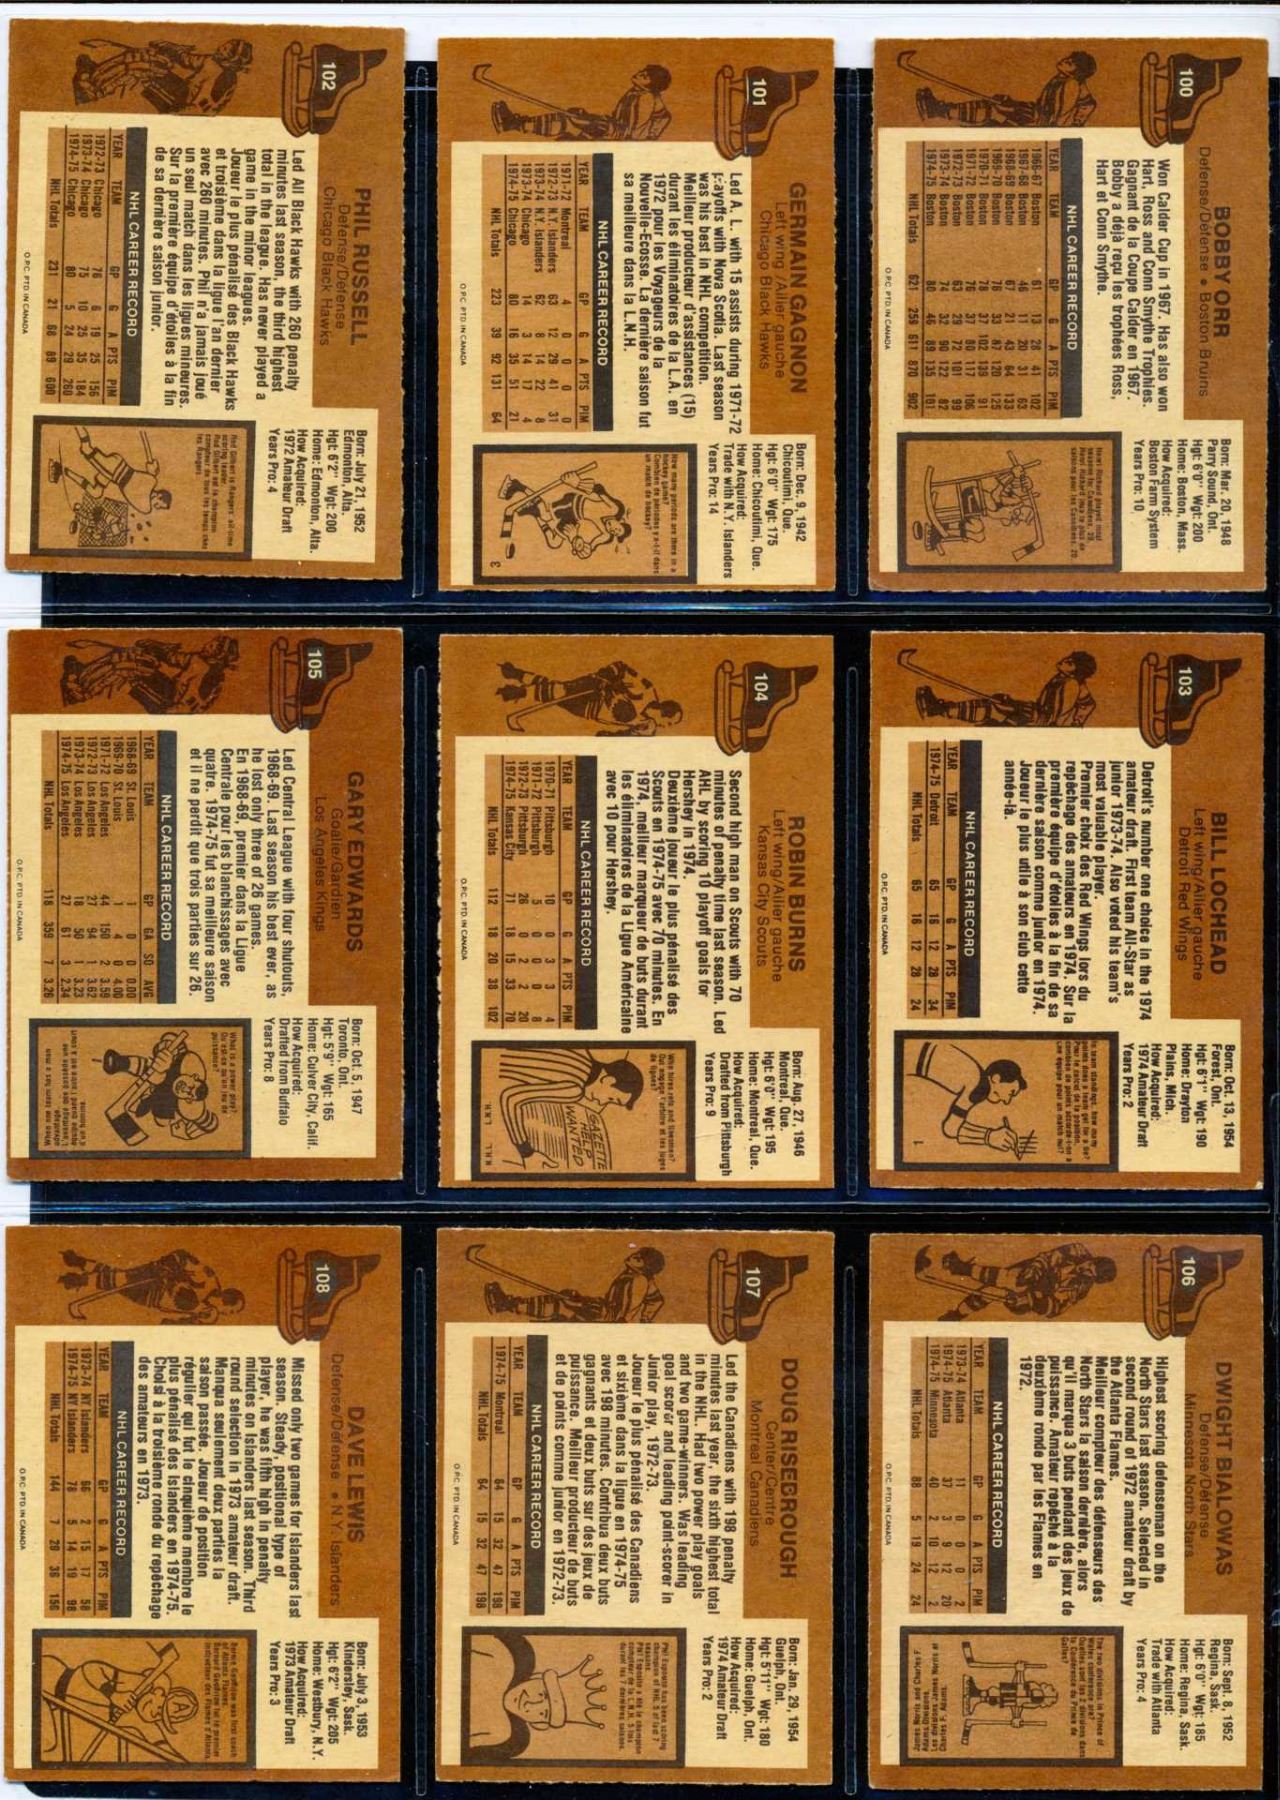 100
BOBBY ORR
Defense/Défense • Boston Bruins
Won Calder Cup in 1967. Has also won
Hart, Ross and Conn Smythe Trophies.
Gagnant de la Coupe Calder en 1967.
Bobby a déjà reçu les trophées Ross,
Hart et Conn Smythe.
NHL CAREER RECORD
YEAR TEAM GP G A PTS PIM
1966-67 Boston 61 13 28 41 102
1967-68 Boston 46 11 20 31 63
1968-69 Boston 67 21 43 64 133
1969-70 Boston 76 33 87 120 125
1970-71 Boston 78 37 102 139 91
1971-72 Boston 76 37 80 117 106
1972-73 Boston 63 29 72 101 99
1973-74 Boston 74 32 90 122 82
1974-75 Boston 80 46 89 135 101
NHL Totals 621 259 611 870 902
Born: Mar. 20, 1948
Parry Sound, Ont.
Hgt: 6'0" Wgt: 200
Home: Boston, Mass.
How Acquired:
Boston Farm System
Years Pro: 10
O.P.C. PTD. IN CANADA
101
GERMAIN GAGNON
Left wing/Ailier gauche
Chicago Black Hawks
Led A. L. with 15 assists during 1971-72
playoffs with Nova Scotia. Last season
was his best in NHL competition.
Meilleur producteur d'assistances (15)
durant les éliminatoires de la L.A. en
1972 pour les Voyageurs de la
Nouvelle-Ecosse. La dernière saison fut
sa meilleure dans la L.N.H.
NHL CAREER RECORD
YEAR TEAM GP G A PTS PIM
1971-72 Montreal 4 0 0 0 0
1972-73 N.Y. Islanders 63 12 29 41 31
1973-74 N.Y. Islanders 62 8 14 22 8
1973-74 Chicago 14 3 14 17 4
1974-75 Chicago 80 16 35 51 21
NHL Totals 223 39 92 131 64
Born: Dec. 9, 1942
Chicoutimi, Que.
Hgt: 6'0" Wgt: 175
Home: Chicoutimi, Que.
How Acquired:
Trade with N.Y. Islanders
Years Pro: 14
How many periods are there in a
hockey game?
Combien de périodes y a-t-il dans
un match de hockey?
3
O.P.C. PTD. IN CANADA
102
PHIL RUSSELL
Defense/Défense
Chicago Black Hawks
Led All Black Hawks with 260 penalty
minutes last season, the third highest
total in the league. Has never played a
game in the minor leagues.
Joueur le plus pénalisé des Black Hawks
et troisième dans la ligue l'an dernier
avec 260 minutes. Phil n'a jamais joué
un seul match dans les ligues mineures.
Sur la première équipe d'étoiles à la fin
de sa dernière saison junior.
NHL CAREER RECORD
YEAR TEAM GP G A PTS PIM
1972-73 Chicago 76 6 19 25 156
1973-74 Chicago 75 10 25 35 184
1974-75 Chicago 80 5 24 29 260
NHL Totals 231 21 68 89 600
Born: July 21, 1952
Edmonton, Alta.
Hgt: 6'2" Wgt: 200
Home: Edmonton, Alta.
How Acquired:
1972 Amateur Draft
Years Pro: 4
Rod Gilbert is Rangers' all-time
scoring leader.
Rod Gilbert est le champion
compteur de tous les temps chez
les Rangers.
O.P.C. PTD. IN CANADA
103
BILL LOCHEAD
Left wing/Ailier gauche
Detroit Red Wings
Detroit's number one choice in the 1974
amateur draft. First team All-Star as
junior 1973-74. Also voted his team's
most valuable player.
Premier choix des Red Wings lors du
repêchage des amateurs en 1974. Sur la
première équipe d'étoiles à la fin de sa
dernière saison comme junior en 1974.
Joueur le plus utile à son club cette
année-là.
NHL CAREER RECORD
YEAR TEAM GP G A PTS PIM
1974-75 Detroit 65 16 12 28 34
NHL Totals 65 16 12 28 24
Born: Oct. 13, 1954
Forest, Ont.
Hgt: 6'1" Wgt: 190
Home: Drayton
Plains, Mich.
How Acquired:
1974 Amateur Draft
Years Pro: 2
1
O.P.C. PTD. IN CANADA
104
ROBIN BURNS
Left wing/Ailier gauche
Kansas City Scouts
Second high man on Scouts with 70
minutes of penalty time last season. Led
AHL by scoring 10 playoff goals for
Hershey in 1974.
Deuxième joueur le plus pénalisé des
Scouts en 1974-75 avec 70 minutes. En
1974, meilleur marqueur de buts durant
les éliminatoires de la Ligue Américaine
avec 10 pour Hershey.
NHL CAREER RECORD
YEAR TEAM GP G A PTS PIM
1970-71 Pittsburgh 10 0 3 3 4
1971-72 Pittsburgh 5 0 0 0 8
1972-73 Pittsburgh 26 0 2 2 20
1974-75 Kansas City 71 18 15 33 70
NHL Totals 112 18 20 38 102
Born: Aug. 27, 1946
Montreal, Que.
Hgt: 6'0" Wgt: 195
Home: Montreal, Que.
How Acquired:
Drafted from Pittsburgh
Years Pro: 9
Who hires refs and linesmen?
Qui engage l'arbitre et les juges
de lignes?
GAZETTE
HELP
WANTED
N.H.L.
L.N.H.
O.P.C. PTD. IN CANADA
105
GARY EDWARDS
Goalie/Gardien
Los Angeles Kings
Led Central League with four shutouts,
1968-69. Last season his best ever, as
he lost only three of 26 games.
En 1968-69, premier dans la Ligue
Centrale pour les blanchissages avec
quatre. 1974-75 fut sa meilleure saison
et il ne perdit que trois parties sur 26.
NHL CAREER RECORD
YEAR TEAM GP GA SO AVG
1968-69 St. Louis 1 0 0 0.00
1969-70 St. Louis 1 4 0 4.00
1971-72 Los Angeles 44 150 2 3.59
1972-73 Los Angeles 27 94 1 3.62
1973-74 Los Angeles 18 50 1 3.23
1974-75 Los Angeles 27 61 3 2.34
NHL Totals 118 359 7 3.26
Born: Oct. 5, 1947
Toronto, Ont.
Hgt: 5'9" Wgt: 165
Home: Culver City, Calif.
How Acquired:
Drafted from Buffalo
Years Pro: 8
What is a power play?
Qu'est-ce qu'un jeu de
puissance?
O.P.C. PTD. IN CANADA
106
DWIGHT BIALOWAS
Defense/Défense
Minnesota North Stars
Highest scoring defenseman on the
North Stars last season. Selected in
second round of 1972 amateur draft by
the Atlanta Flames.
Meilleur compteur des défenseurs des
North Stars la saison dernière, alors
qu'il marqua 3 buts pendant des jeux de
puissance. Amateur repêché à la
deuxième ronde par les Flames en
1972.
NHL CAREER RECORD
YEAR TEAM GP G A PTS PIM
1973-74 Atlanta 11 0 0 0 2
1974-75 Atlanta 37 3 9 12 20
1974-75 Minnesota 40 2 10 12 2
NHL Totals 88 5 19 24 24
Born: Sept. 8, 1952
Regina, Sask.
Hgt: 6'0" Wgt: 185
Home: Regina, Sask.
How Acquired:
Trade with Atlanta
Years Pro: 4
O.P.C. PTD. IN CANADA
107
DOUG RISEBROUGH
Center/Centre
Montreal Canadiens
Led the Canadiens with 198 penalty
minutes last year, the sixth highest total
in the NHL. Had two power play goals
and two game-winners. Was leading
goal scorer and leading point-scorer in
Junior play, 1972-73.
Joueur le plus pénalisé des Canadiens
et sixième dans la ligue en 1974-75
avec 198 minutes. Contribua deux buts
gagnants et deux buts sur des jeux de
puissance. Meilleur producteur de buts
et de points comme junior en 1972-73.
NHL CAREER RECORD
YEAR TEAM GP G A PTS PIM
1974-75 Montreal 64 15 32 47 198
NHL Totals 64 15 32 47 198
Born: Jan. 29, 1954
Guelph, Ont.
Hgt: 5'11" Wgt: 180
Home: Guelph, Ont.
How Acquired:
1974 Amateur Draft
Years Pro: 2
O.P.C. PTD. IN CANADA
108
DAVE LEWIS
Defense/Défense • N.Y. Islanders
Missed only two games for Islanders last
season. Steady, positional type of
player, he was fifth high in penalty
minutes on Islanders last season. Third
round selection in 1973 amateur draft.
Manqua seulement deux parties la
saison passée. Joueur de position
régulier qui fut le cinquième membre le
plus pénalisé des Islanders en 1974-75.
Choisi à la troisième ronde du repêchage
des amateurs en 1973.
NHL CAREER RECORD
YEAR TEAM GP G A PTS PIM
1973-74 NY Islanders 66 2 15 17 58
1974-75 NY Islanders 78 5 14 19 98
NHL Totals 144 7 29 36 156
Born: July 3, 1953
Kindersley, Sask.
Hgt: 6'2" Wgt: 205
Home: Westbury, N.Y.
How Acquired:
1973 Amateur Draft
Years Pro: 3
A
O.P.C. PTD. IN CANADA